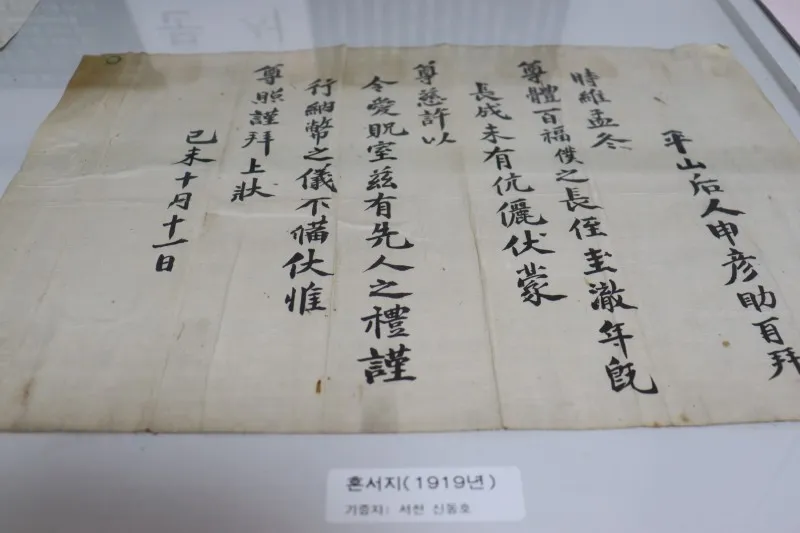 平山后人申彦助百拜
時維孟冬
尊體百福僕之長侄圭澈年旣
長成未有伉儷伏蒙
尊慈許以
令愛貺室玆有先人之禮謹
行納幣之儀不備伏惟
尊照謹拜上狀
己未十月十一日
혼서지(1919년)
기증자: 서천 신동호